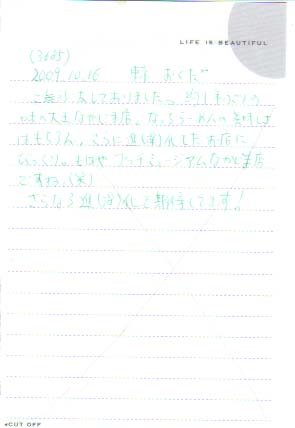 LIFE IS BEAUTIFUL
(3685)
2009.10.16 おくだ
ご無沙汰しておりました。約1年ぶりの
味の大王なかじま店。なっちらーめんの美味しさ
はもちろん、さらに進(深)化したお店に
びっくり。もはやプッチミュージアムなかじま店
ですね。(笑)
さらなる進(深)化を期待してます!
◂CUT OFF